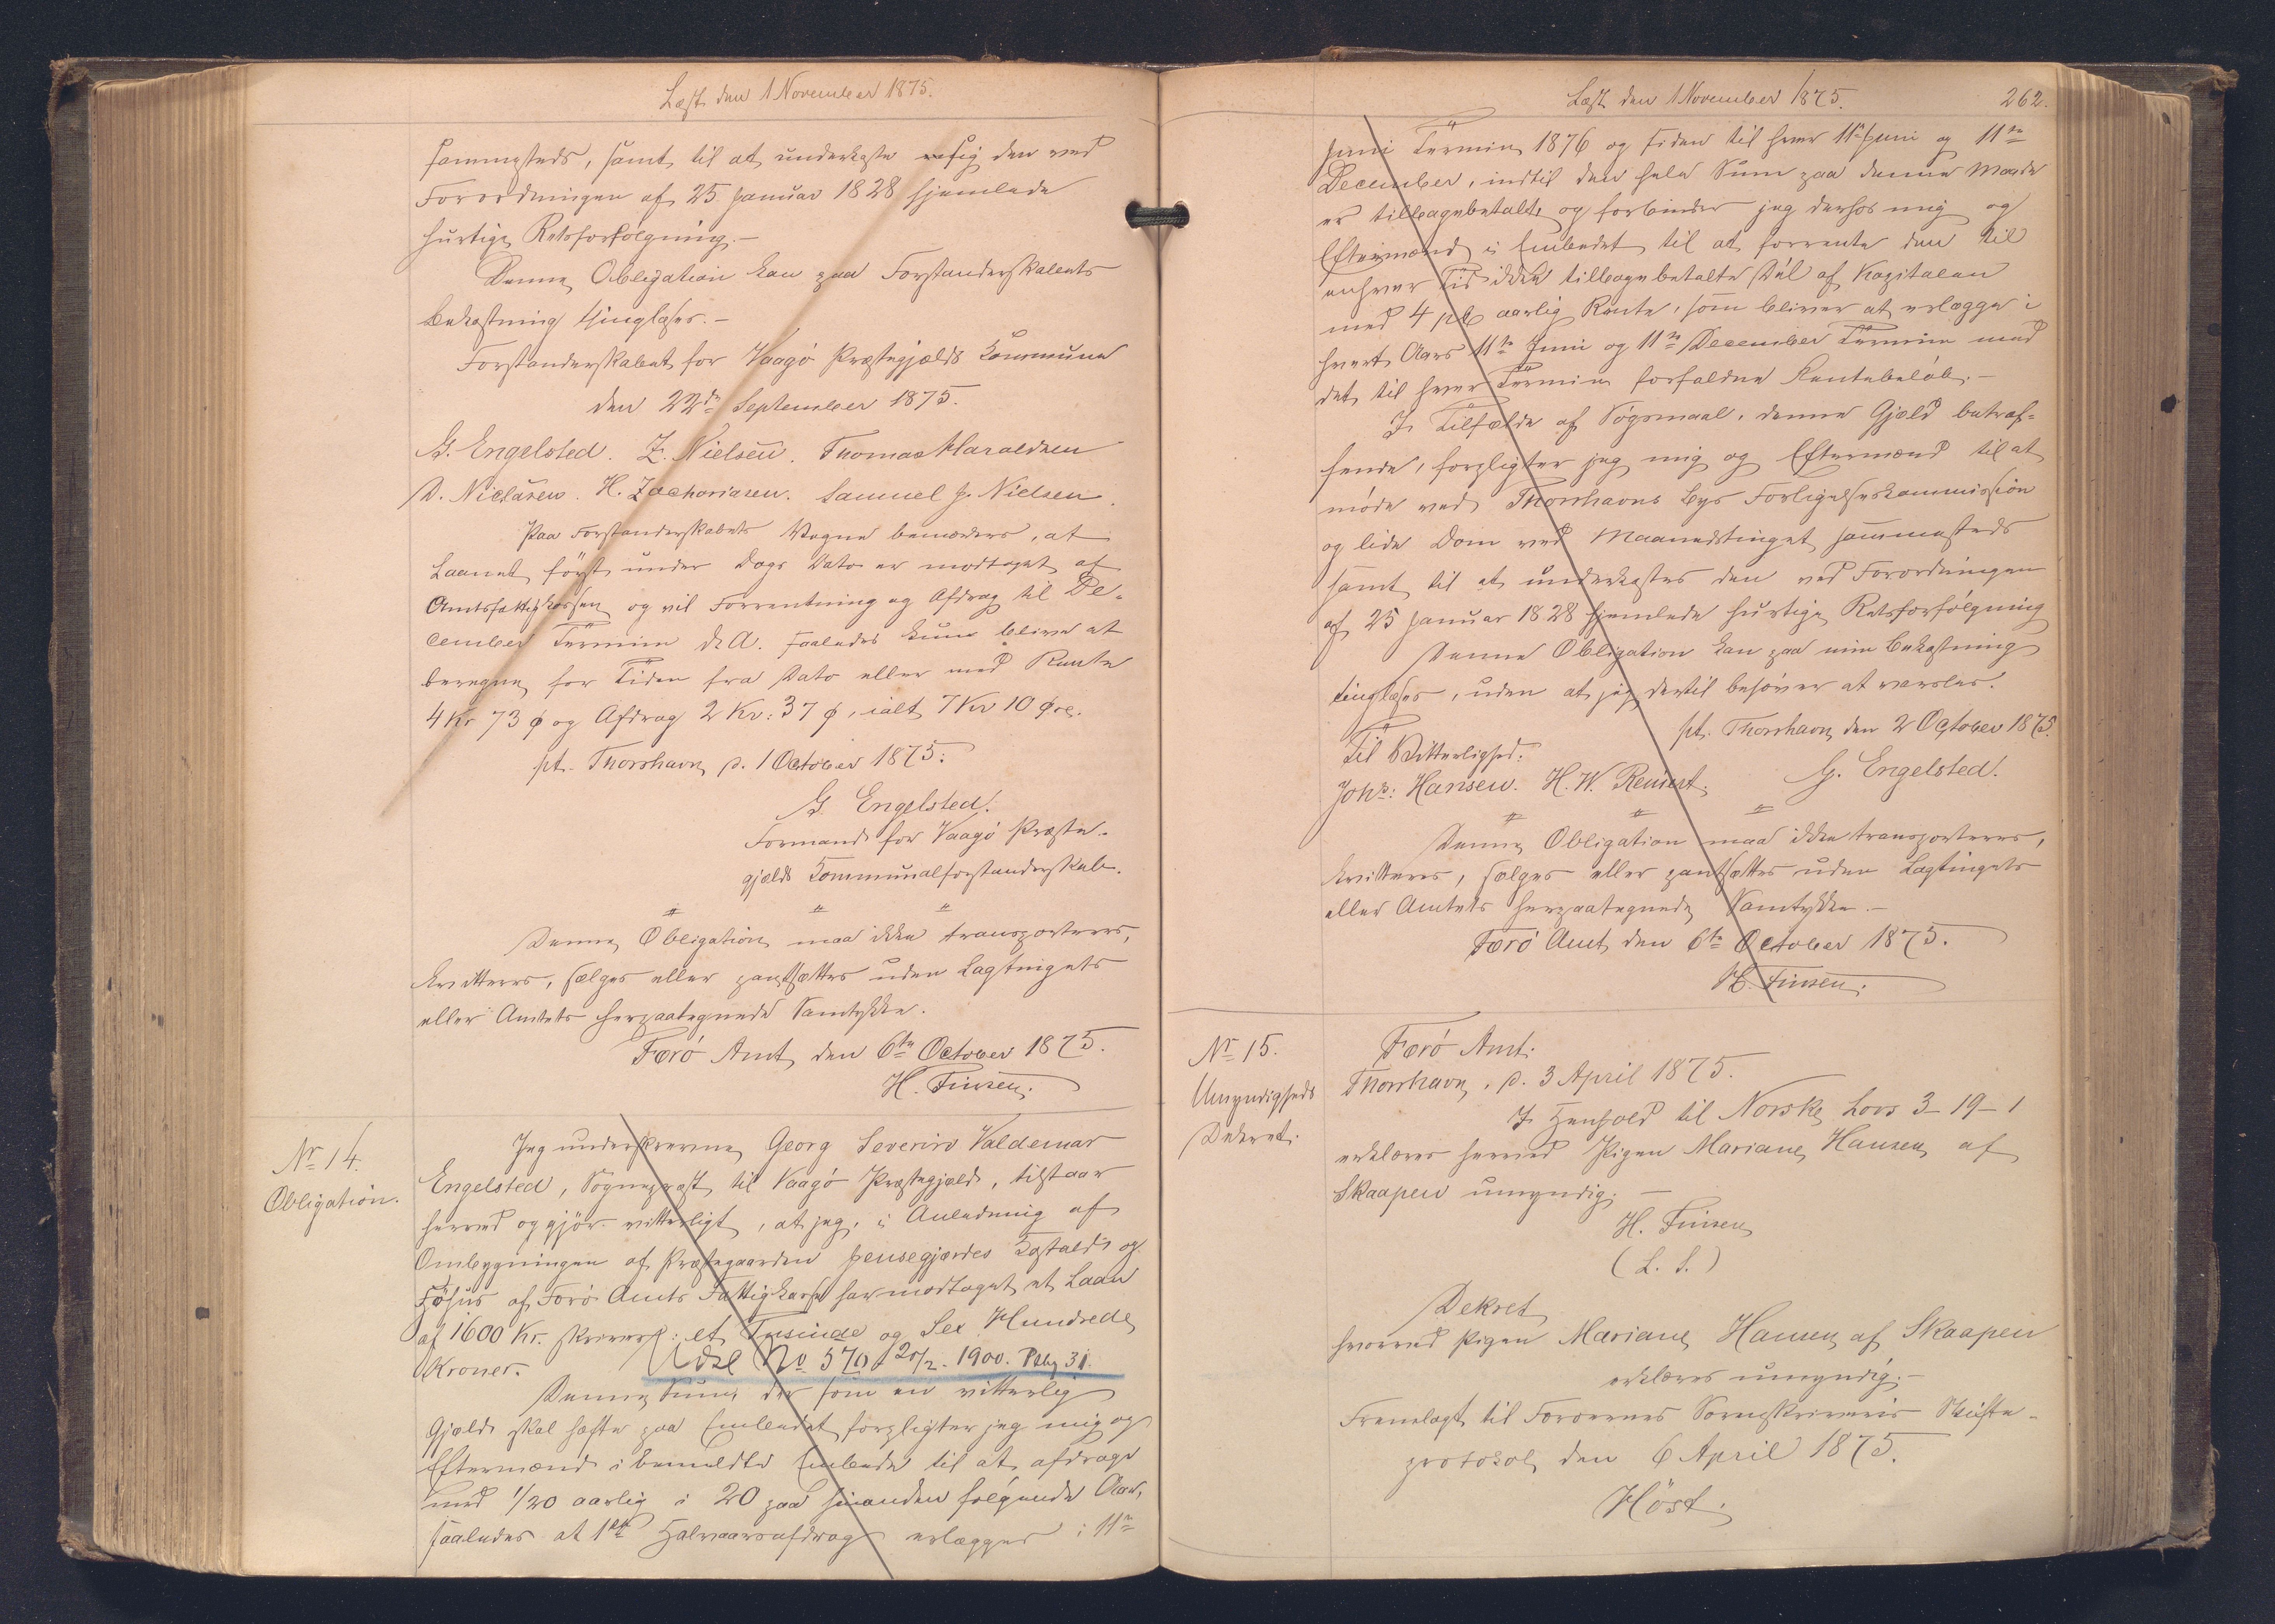 Læst den 1 November 1875.
sammesteds, samt til at underkaste sig den ved
Forordningen af 25 Januar 1828 hjemlede
hurtige Retsforfølgning.-
Denne Obligation kan paa Forstanderskabets
Bekostning thinglæses.-
Forstanderskabet for Vaagö Præstegjælds Kommune
den 22de September 1875.
G. Engelsted. Z. Nielsen. Thomas Haraldsen
D. Niclasen. H. Zachariasen. Samuel J. Nielsen.
Paa Forstanderskabets Vegne bemærkes, at
Laanet först under Dags Dato er modtaget af
Amtsfattigkassen og vil Forrentning og Afdrag til De-
cember Termin d. A. saaledes kun blive at
beregne for Tiden fra Dato eller med Rente
4 Kr 73 ø og Afdrag 2 Kr: 37 ø, ialt 7 Kr 10 Øre.
pt. Thorshavn, d. 1 October 1875.
G. Engelsted.
Formand for Vaagö Præste-
gjælds Kommunalforstanderskab.
Denne Obligation maa ikke transporteres,
kvitteres, sælges eller pantsættes uden Lagtingets
eller Amtets herpaategnede Samtykke.
Færö Amt, den 6te October 1875.
H. Finsen.
No 14.
Obligation.
Jeg underskrevne Georg Severin Valdemar
Engelsted, Sognepræst til Vaagö Præstegjæld, tilstaar
herved og gjör vitterligt, at jeg, i Anledning af
Ombygningen af Præstegaarden Jensegjærdes Kostald og
Föhus af Færö Amts Fattigkasse har modtaget et Laan
af 1600 Kr. skriver: et Tusinde og Sex Hundrede
Kroner.
Udsl No 570 20/2 - 1900. Ptbg 31.
Denne Sum, der som en vitterlig
Gjæld skal hæfte paa Embedet forpligter jeg mig og
Eftermænd i bemeldte Embede til at afdrage
med 1/20 aarlig i 20 paa hinanden fölgende Aar,
saaledes at 1ste Halvaarsafdrag erlægges i 11te
Læst den 1 November 1875.
262.
Juni Termin 1876 og siden til hver 11te Juni og 11te
December, indtil den hele Sum paa denne Maade
er tilbagebetalt, og forbinder jeg derhos mig og
Eftermænd i Embedet til at forrente den til
enhver Tid ikke tilbagebetalte Del af Kapitalen
med 4 pCt aarlig Rente, som bliver at erlægge i
hvert Aars 11te Juni og 11te December Termin med
det til hver Termin forfaldne Rentebelöb.-
I Tilfælde af Sögsmaal, denne Gjæld betræf-
fende, forpligter jeg mig og Eftermænd til at
möde ved Thorshavns Bys Forligelseskommission
og lide Dom ved Maanedstinget sammesteds
samt til at underkastes den ved Forordningen
af 25 Januar 1828 hjemlede hurtige Retsforfölgning
Denne Obligation kan paa min Bekostning
tinglæses, uden at jeg dertil behöver at varsles.
pt. Thorshavn, den 2 October 1875.
Til Vitterlighed:
G. Engelsted.
Johs: Hansen. H. W. Reinert.
Denne Obligation maa ikke transporteres,
kvitteres, sælges eller pantsættes uden Lagtingets
eller Amtets herpaategnede Samtykke.-
Færö Amt, den 6te October 1875.
H. Finsen.
No 15.
Umyndigheds
Dekret.
Færö Amt.
Thorshavn, d. 3 April 1875.
I Henhold til Norske Lovs 3-19-1
erklæres herved Pigen Mariane Hansen af
Skaapen umyndig.-
H. Finsen
(L. S.)
Dekret
hvorved Pigen Mariane Hansen af Skaapen
erklæres umyndig.-
Fremlagt til Færöernes Sorenskriveris Skifte-
protokol, den 6 April 1875.
Höst.